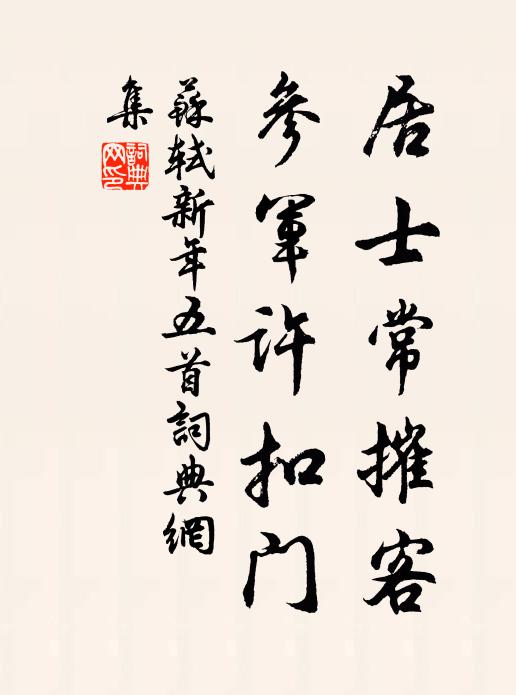 居士常摧客
參軍許扣门
蘇軾新年五首詞典網
集
詞典
网印